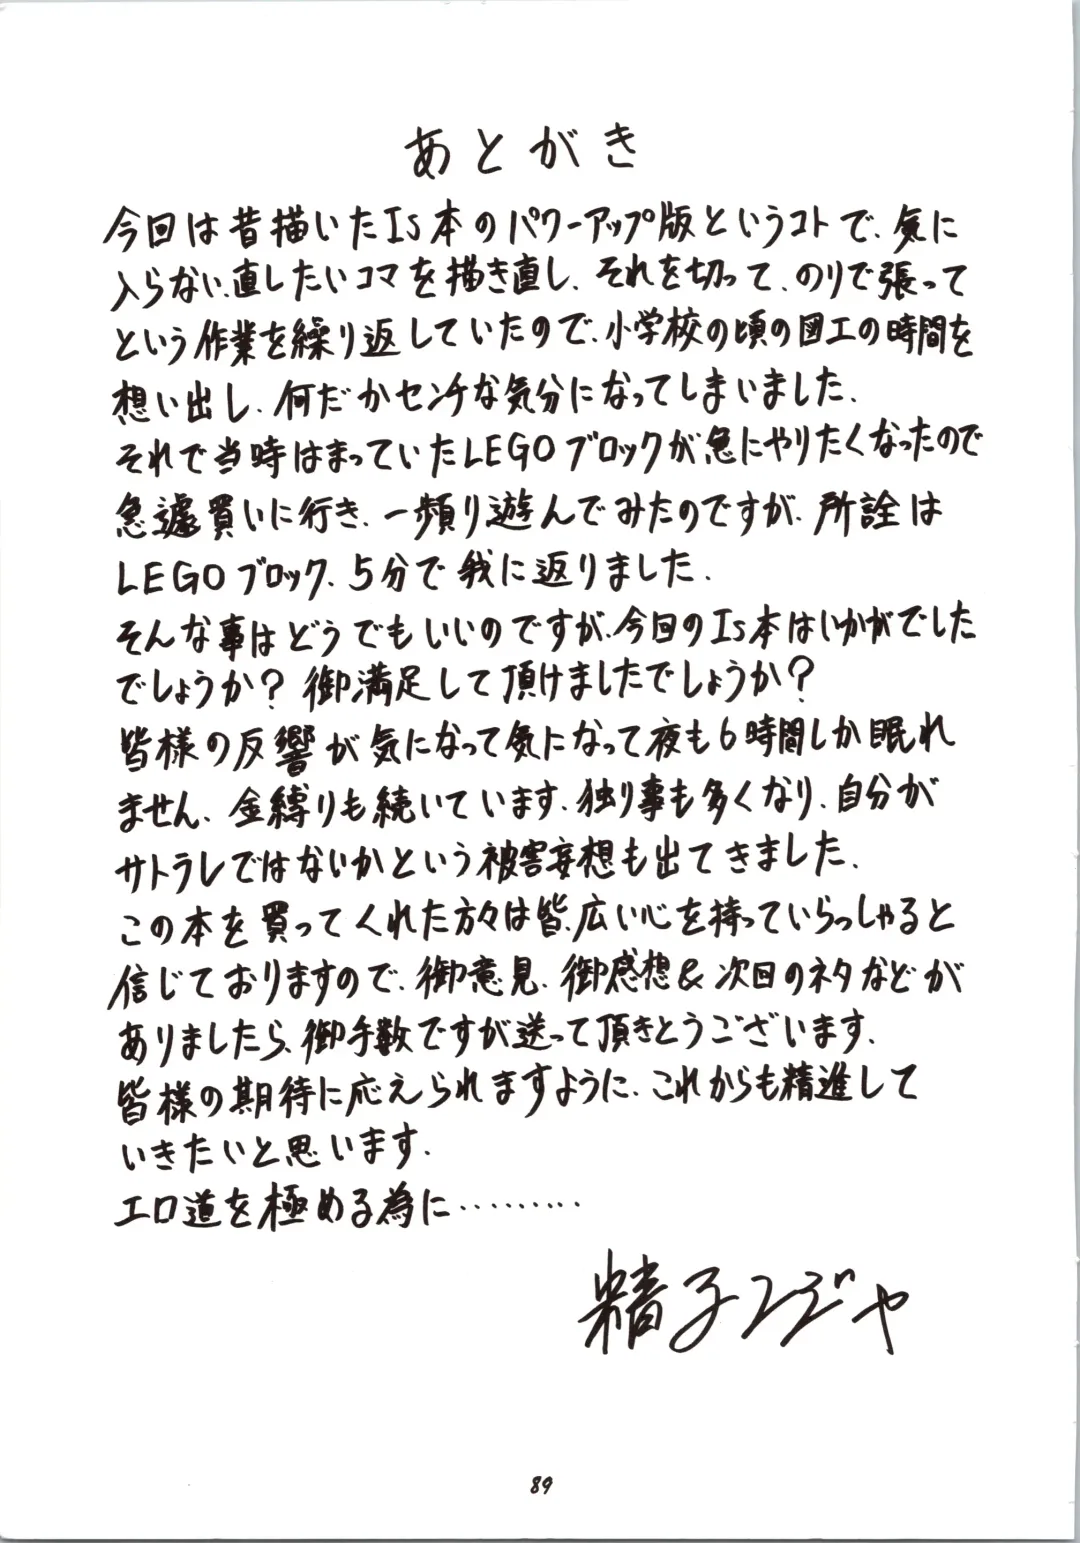 あとがき
今回は昔描いたIs本のパワーアップ版というコトで、気に
入らない、直したいコマを描き直し、それを切って、のりで張って
という作業を繰り返していたので、小学校の頃の図工の時間を
想い出し、何だかセンチな気分になってしまいました.
それで当時はまっていたLEGOブロックが急にやりたくなったので
急遽買いに行き、一頻り遊んでみたのですが、所詮は
LEGOブロック、5分で我に返りました.
そんな事はどうでもいいのですが、今回のIs本はいかがでした
でしょうか？御満足して頂けましたでしょうか？
皆様の反響が気になって気になって夜も6時間しか眠れ
ません、金縛りも続いています、独り事も多くなり、自分が
サトラレではないかという被害妄想も出てきました.
この本を買ってくれた方々は皆、広い心を持っていらっしゃると
信じておりますので、御意見、御感想&次回のネタなどが
ありましたら、御手数ですが送って頂きとうございます.
皆様の期待に応えられますように、これからも精進して
いきたいと思います.
エロ道を極める為に………
精子ンジャ
89